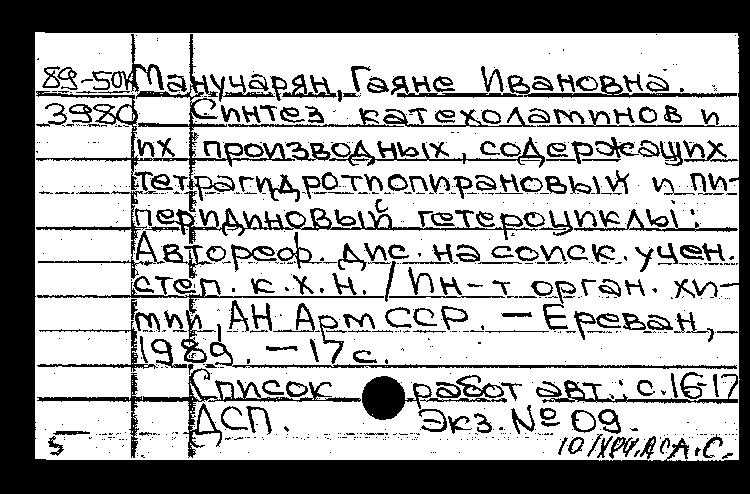 89-50к Манучарян, Гаяне Ивановна.
3980 Синтез катехоламинов и
их производных, содержащих
тетрагидротиопирановый и пи-
перидиновый гетероциклы:
Автореф. дис. на соиск. учен.
степ. к.х.н. / Ин-т орган. хи-
мии, АН АрмССР. — Ереван,
1989. — 17 с.
Список работ авт.: с.16-17
ДСП. Экз. № 09.
5